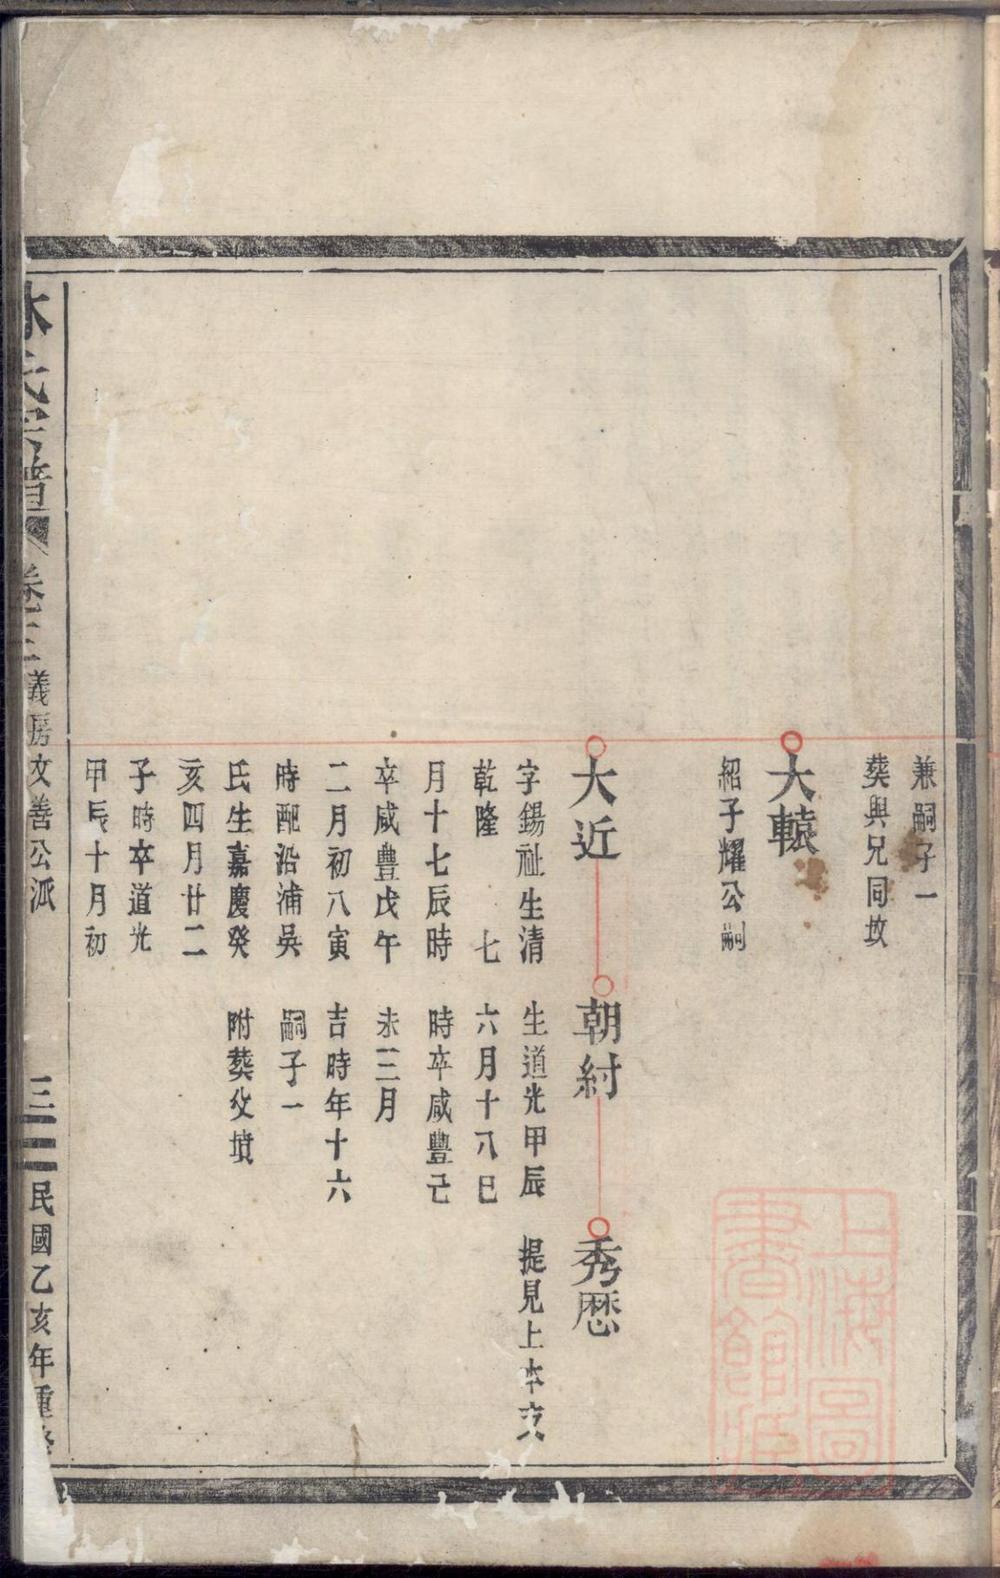 兼嗣子一
葬與兄同坟
大轅
紹子耀公嗣
大近
字錫祉生清
乾隆　七
月十七辰時
卒咸豐戊午
二月初八寅
時配沿浦吳
氏生嘉慶癸
亥四月廿二
子時卒道光
甲辰十月初
朝紂
生道光甲辰
六月十八巳
時卒咸豐己
未三月
吉時年十六
嗣子一
附葬父墳
秀歷
提見上本文
林氏宗譜
卷三
義房文善公派
三
民國乙亥年重修
上海圖書館藏